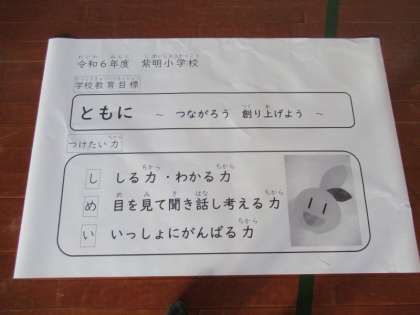 令和6年度　紫明小学校
学校教育目標
ともに　～　つながろう　創り上げよう　～
つけたい力
し　しる力・わかる力
め　目を見て聞き話し考える力
い　いっしょにがんばる力